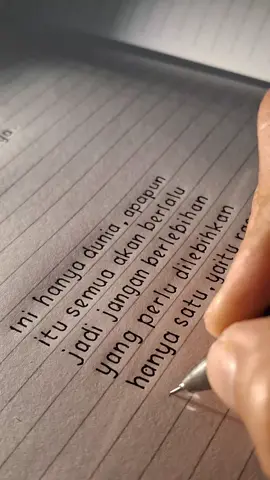 ya.
Ini hanya dunia, apapun
itu semua akan berlalu
jadi jangan berlebihan
yang perlu dilebihkan
hanya satu, yaitu